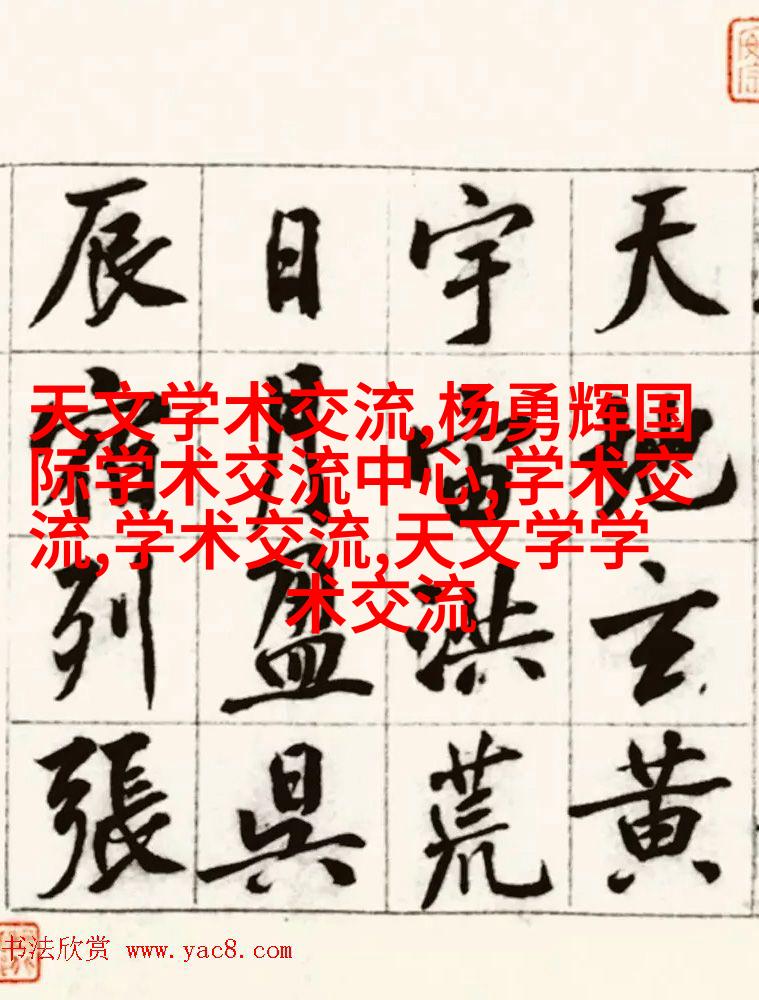 天地玄黄
宇宙洪荒
日月盈昃
辰宿列張
天文学术交流,杨勇辉国
际学术交流中心,学术交
流,学术交流,天文学学
术交流
书法欣赏 www.yac8.com